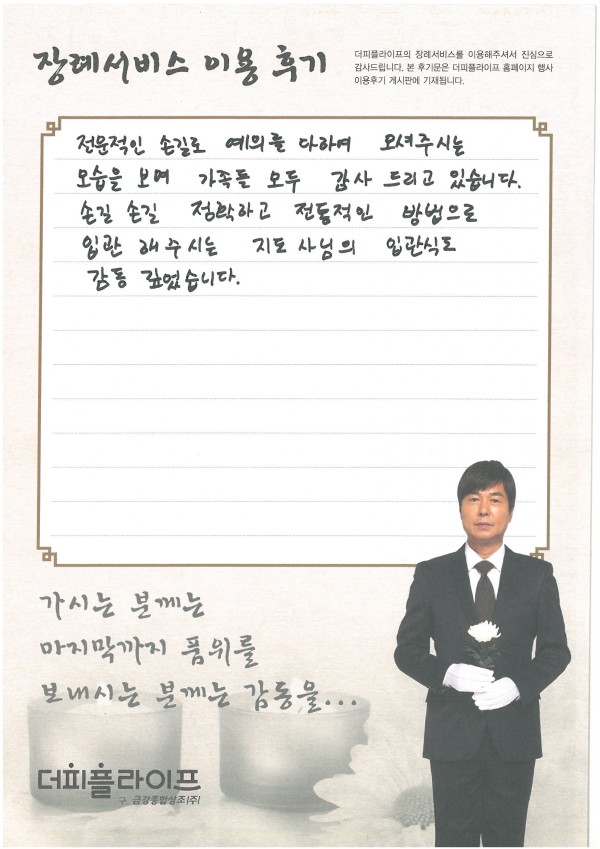 장례서비스 이용 후기
더피플라이프의 장례서비스를 이용해주셔서 진심으로
감사드립니다. 본 후기문은 더피플라이프 홈페이지 행사
이용후기 게시판에 기재됩니다.
전문적인 손길로 예의를 다하여 모셔주시는
모습을 보며 가족들 모두 감사 드리고 있습니다.
손길 손길 정확하고 전통적인 방법으로
입관 해주시는 지도사님의 입관식도
감동 깊었습니다.
가시는 분께는
마지막까지 품위를
보내시는 분께는 감동을...
더피플라이프
구. 금강종합상조(주)